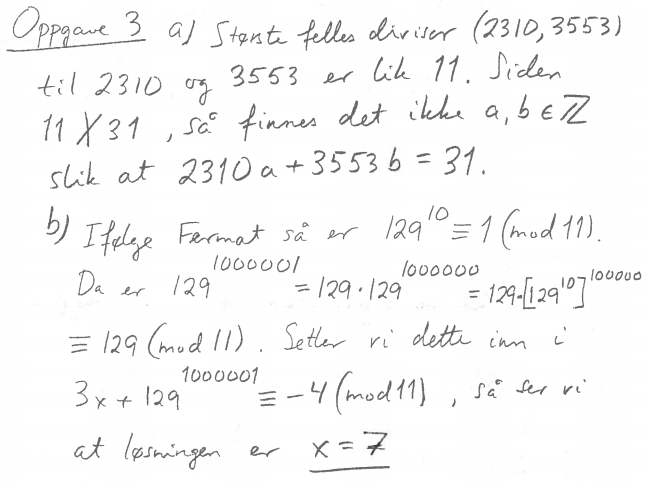 Oppgave 3 a) Største felles divisor (2310, 3553)
til 2310 og 3553 er lik 11. Siden
11 ∤ 31, så finnes det ikke a, b ∈ ℤ
slik at 2310a + 3553b = 31.
b) Ifølge Fermat så er 129^10 ≡ 1 (mod 11).
Da er 129^1000001 = 129 · 129^1000000 = 129·[129^10]^100000
≡ 129 (mod 11). Setter vi dette inn i
3x + 129^1000001 ≡ -4 (mod 11), så ser vi
at løsningen er x = 7